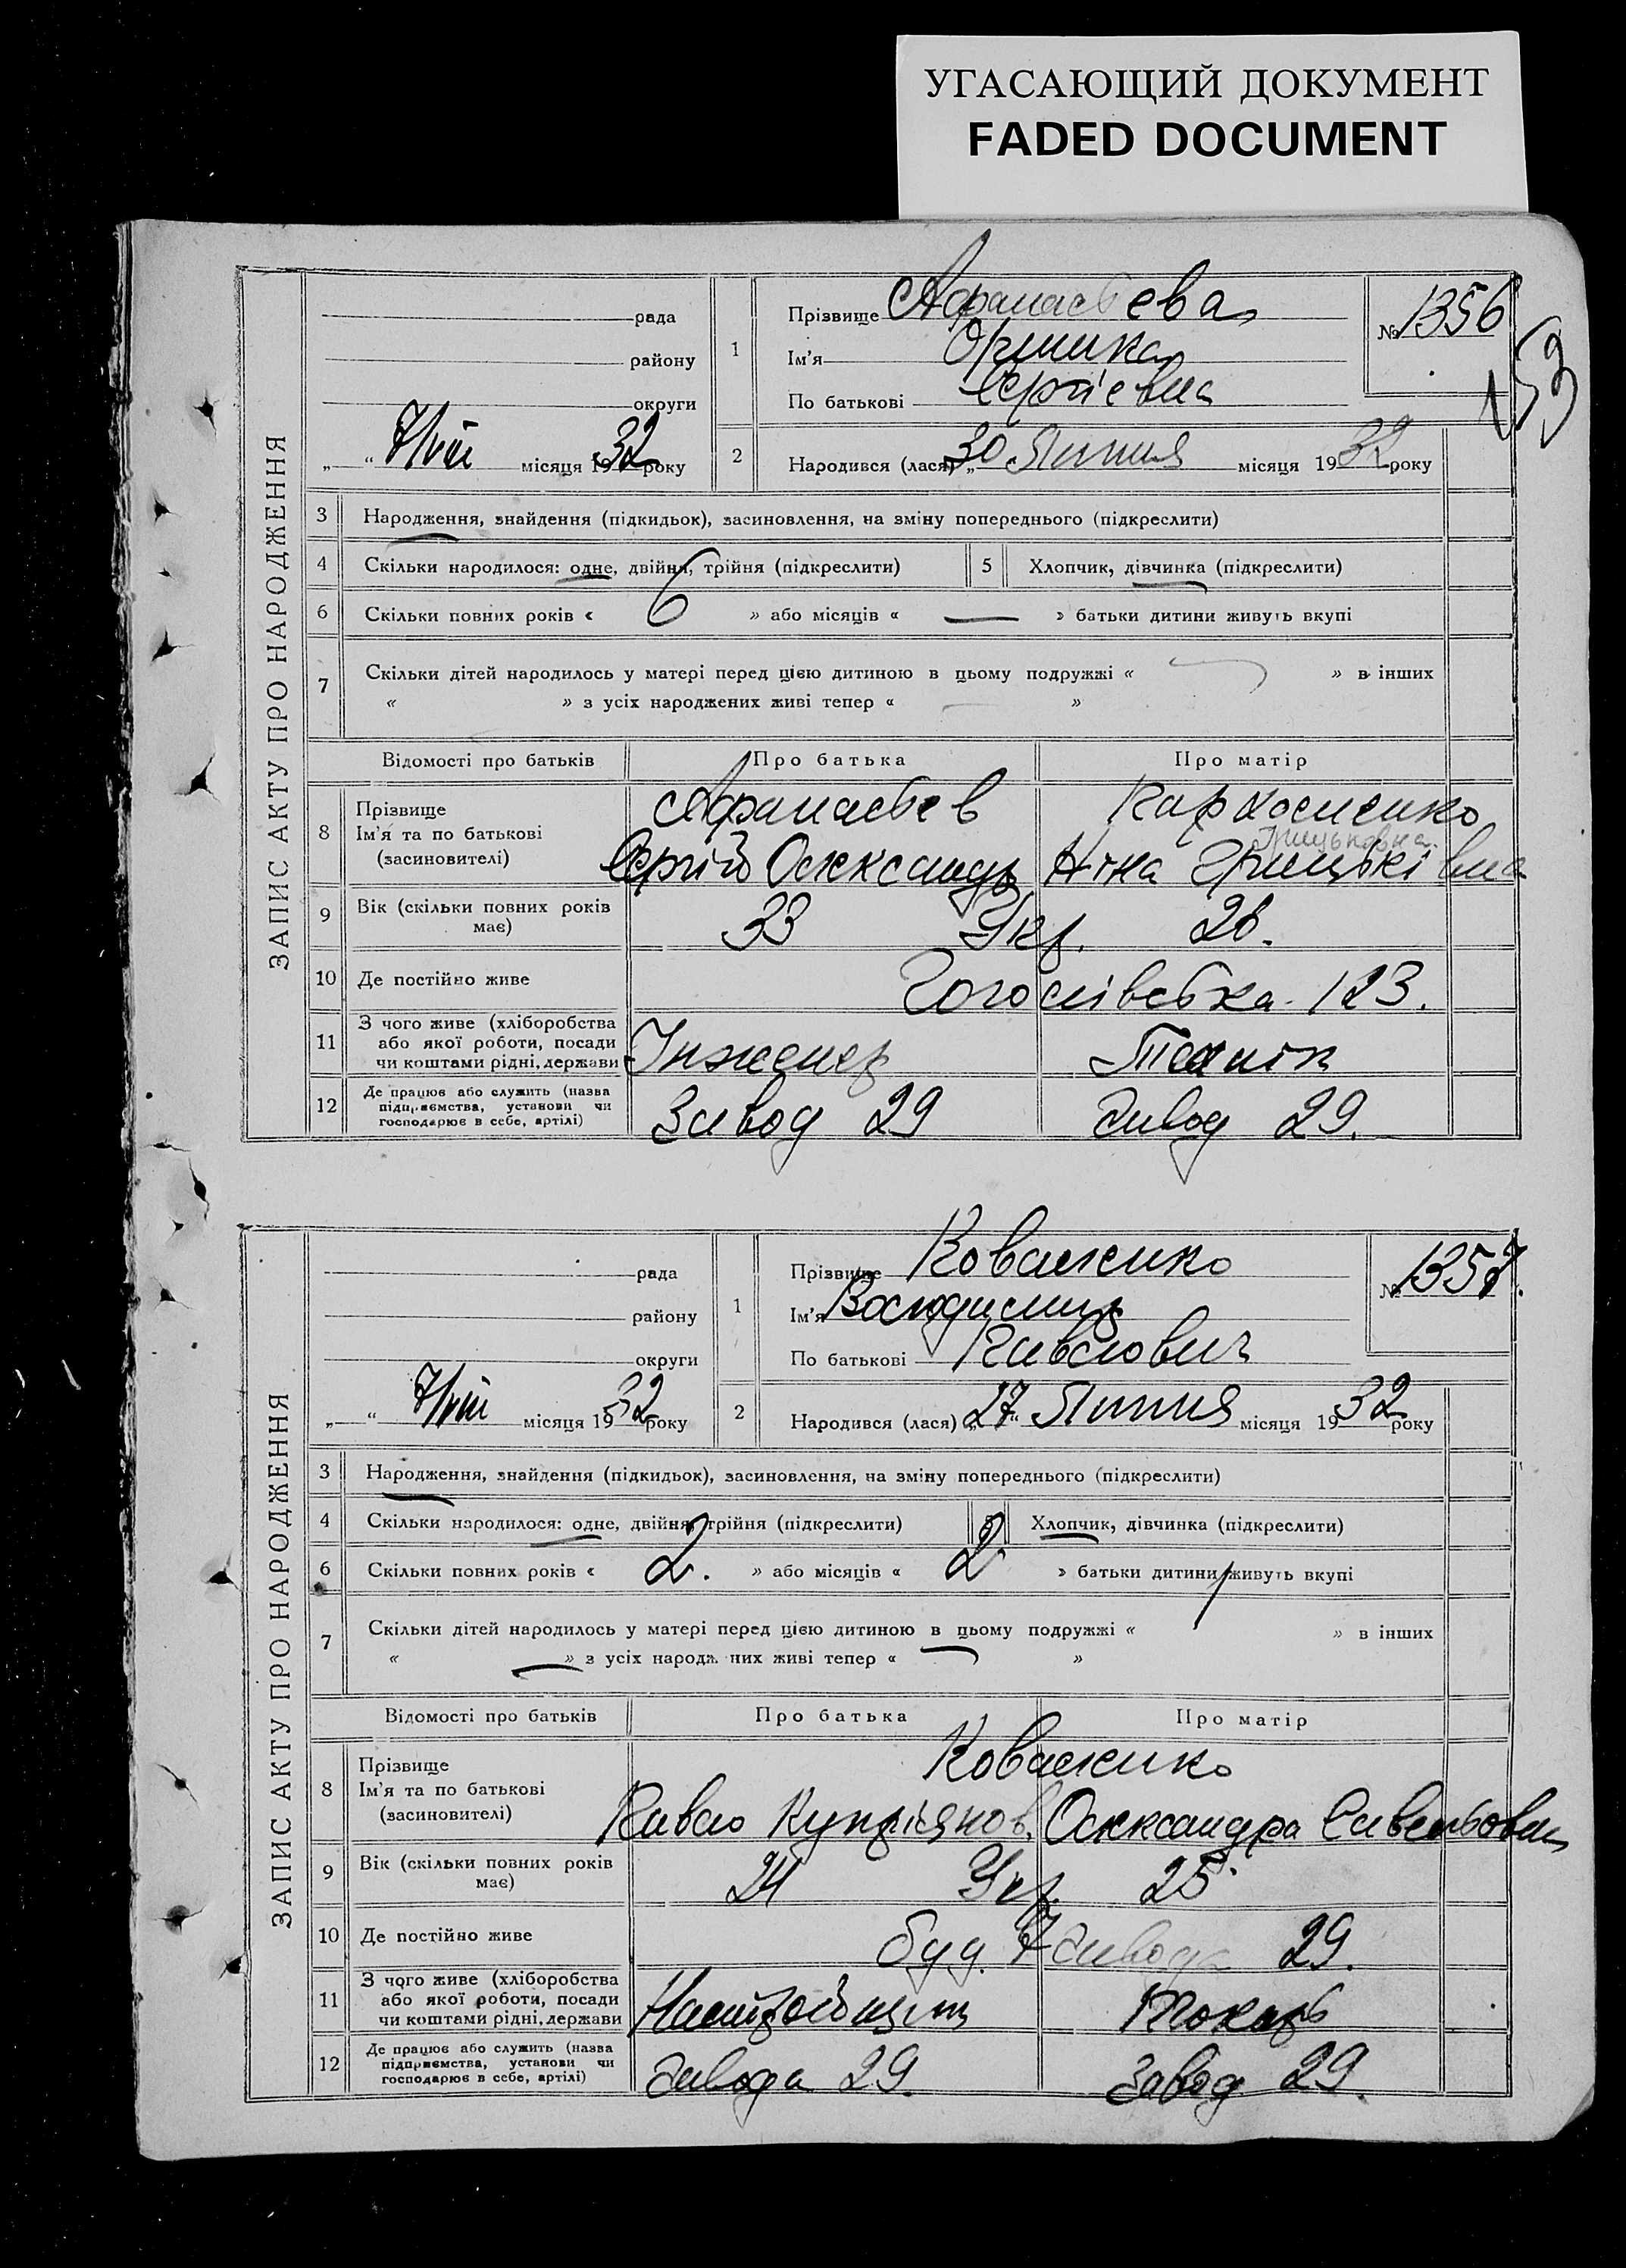 УГАСАЮЩИЙ ДОКУМЕНТ
FADED DOCUMENT
ЗАПИС АКТУ ПРО НАРОДЖЕННЯ
рада
району
округи
„ “ 7/VIII місяця 1932 року
1
Прізвище Афанасьева
Ім'я
По батькові Сергіевна
№ 1356
153
2 Народився (лася) „30 Липня місяця 1932 року
3 Народження, знайдення (підкидьок), засиновлення, на зміну попереднього (підкреслити)
4 Скільки народилося: одне, двійня, трійня (підкреслити) 5 Хлопчик, дівчинка (підкреслити)
6 Скільки повних років « 6 » або місяців « — » батьки дитини живуть вкупі
7 Скільки дітей народилось у матері перед цією дитиною в цьому подружжі « » в інших
« » з усіх народжених живі тепер « — »
Відомості про батьків Про батька Про матір
8 Прізвище Афанасьев
Ім'я та по батькові Грицьковна
(засиновителі) Сергій Олександр Ніна Грицьківна
9 Вік (скільки повних років має) 33 Укр. 26.
10 Де постійно живе Гоголівська 123.
11 З чого живе (хліборобства
або якої роботи, посади
чи коштами рідні, держави Інженер Технік
12 Де працює або служить (назва
підприємства, установи чи
господарює в себе, артілі) Завод 29 Завод 29.
ЗАПИС АКТУ ПРО НАРОДЖЕННЯ
рада
району
округи
„ “ 7/VIII місяця 1932 року
1
Прізвище Коваленко
Ім'я Володимир
По батькові Павлович
№ 1357.
2 Народився (лася) „27“ Липня місяця 1932 року
3 Народження, знайдення (підкидьок), засиновлення, на зміну попереднього (підкреслити)
4 Скільки народилося: одне, двійня, трійня (підкреслити) 5 Хлопчик, дівчинка (підкреслити)
6 Скільки повних років « 2. » або місяців « 2 » батьки дитини живуть вкупі
7 Скільки дітей народилось у матері перед цією дитиною в цьому подружжі « 1 » в інших
« — » з усіх народжених живі тепер « — »
Відомості про батьків Про батька Про матір
8 Прізвище Коваленко
Ім'я та по батькові
(засиновителі) Павло Купріянов. Олександра Савельовна
9 Вік (скільки повних років має) 24 Укр. 25
10 Де постійно живе буд. 7 завода 29.
11 З чого живе (хліборобства
або якої роботи, посади
чи коштами рідні, держави Настройщик Токарь
12 Де працює або служить (назва
підприємства, установи чи
господарює в себе, артілі) Завода 29. Завод 29.